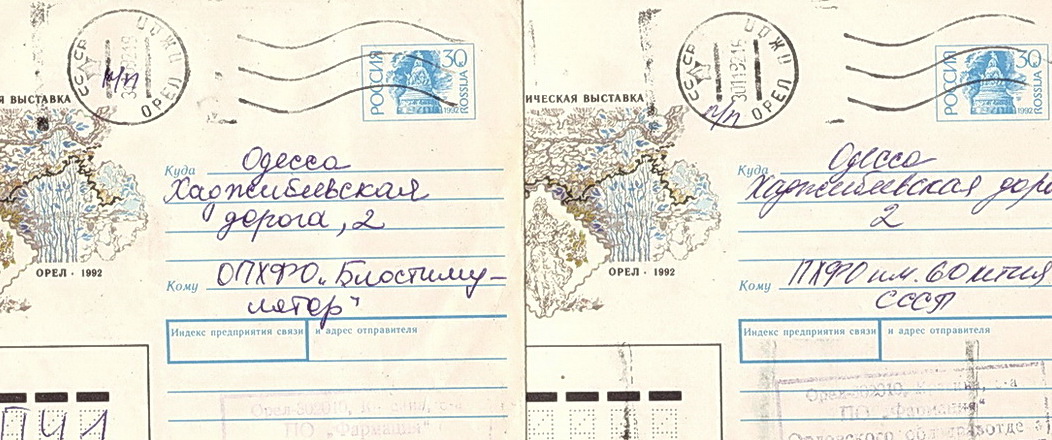 СССР ОРЕЛ ЦОЖП
РОССИЯ 30 1992 ROSSIJA
Я ВЫСТАВКА
Куда Одесса
Хаджибеевская
дорога, 2
ОРЕЛ · 1992
Кому ОПХФО „Биостиму-
лятор"
Индекс предприятия связи и адрес отправителя
ПО "Фармация"
СССР ОРЕЛ ЦОЖП
РОССИЯ 30 1992 ROSSIJA
ИЧЕСКАЯ ВЫСТАВКА
Куда Одесса
Хаджибеевская доро
2
ОРЕЛ · 1992
Кому ПХФО им. 60летия
СССР
Индекс предприятия связи и адрес отправителя
Орел-302010,
ПО "Фармация"